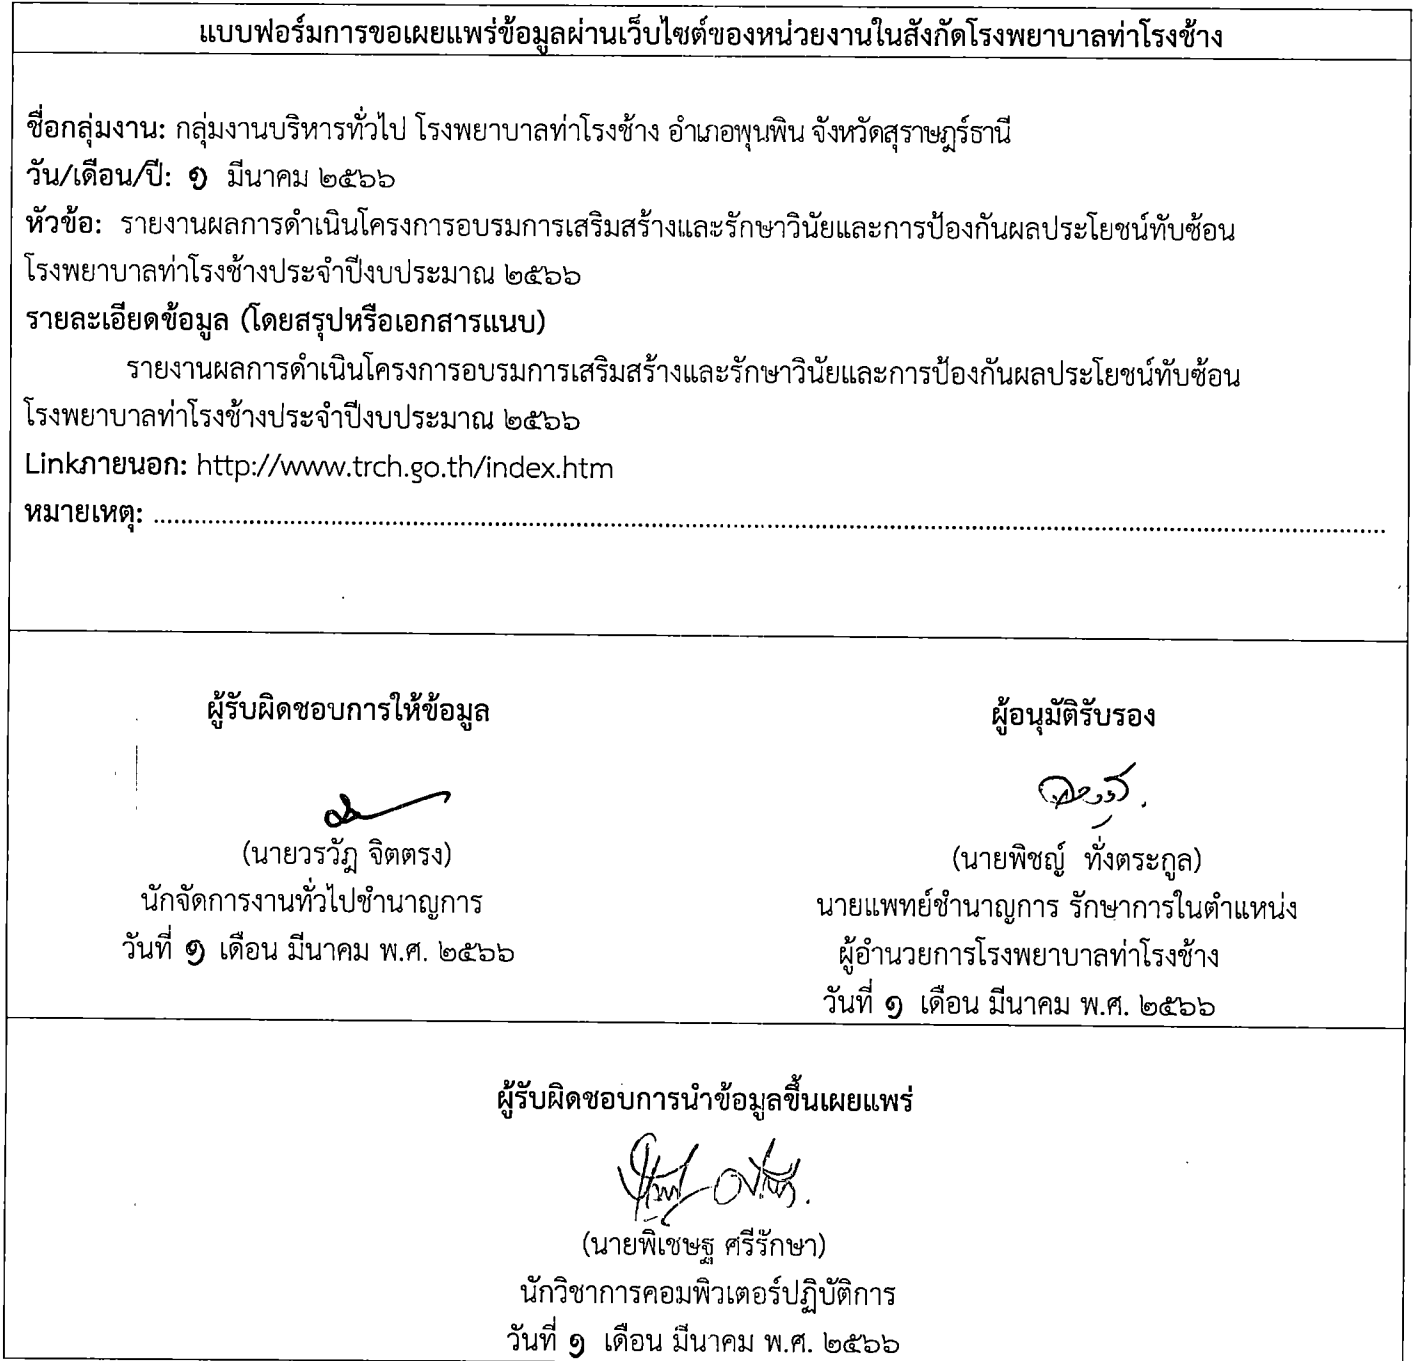 แบบฟอร์มการขอเผยแพร่ข้อมูลผ่านเว็บไซต์ของหน่วยงานในสังกัดโรงพยาบาลท่าโรงช้าง
ชื่อกลุ่มงาน: กลุ่มงานบริหารทั่วไป โรงพยาบาลท่าโรงช้าง อำเภอพุนพิน จังหวัดสุราษฎร์ธานี
วัน/เดือน/ปี: ๑ มีนาคม ๒๕๖๖
หัวข้อ: รายงานผลการดำเนินโครงการอบรมการเสริมสร้างและรักษาวินัยและการป้องกันผลประโยชน์ทับซ้อน
โรงพยาบาลท่าโรงช้างประจำปีงบประมาณ ๒๕๖๖
รายละเอียดข้อมูล (โดยสรุปหรือเอกสารแนบ)
รายงานผลการดำเนินโครงการอบรมการเสริมสร้างและรักษาวินัยและการป้องกันผลประโยชน์ทับซ้อน
โรงพยาบาลท่าโรงช้างประจำปีงบประมาณ ๒๕๖๖
Linkภายนอก: http://www.trch.go.th/index.htm
หมายเหตุ: ........................................................................................................................
ผู้รับผิดชอบการให้ข้อมูล
(นายวรวัฎ จิตตรง)
นักจัดการงานทั่วไปชำนาญการ
วันที่ ๑ เดือน มีนาคม พ.ศ. ๒๕๖๖
ผู้อนุมัติรับรอง
(นายพิชญ์ ทั่งตระกูล)
นายแพทย์ชำนาญการ รักษาการในตำแหน่ง
ผู้อำนวยการโรงพยาบาลท่าโรงช้าง
วันที่ ๑ เดือน มีนาคม พ.ศ. ๒๕๖๖
ผู้รับผิดชอบการนำข้อมูลขึ้นเผยแพร่
(นายพิเชษฐ ศรีรักษา)
นักวิชาการคอมพิวเตอร์ปฏิบัติการ
วันที่ ๑ เดือน มีนาคม พ.ศ. ๒๕๖๖